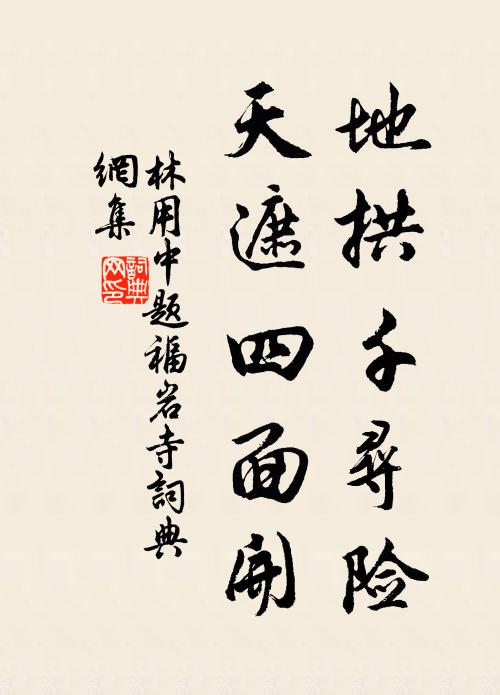 地拱千尋险
天遮四面開
林用中题福岩寺詞典
網集
詞典
网印